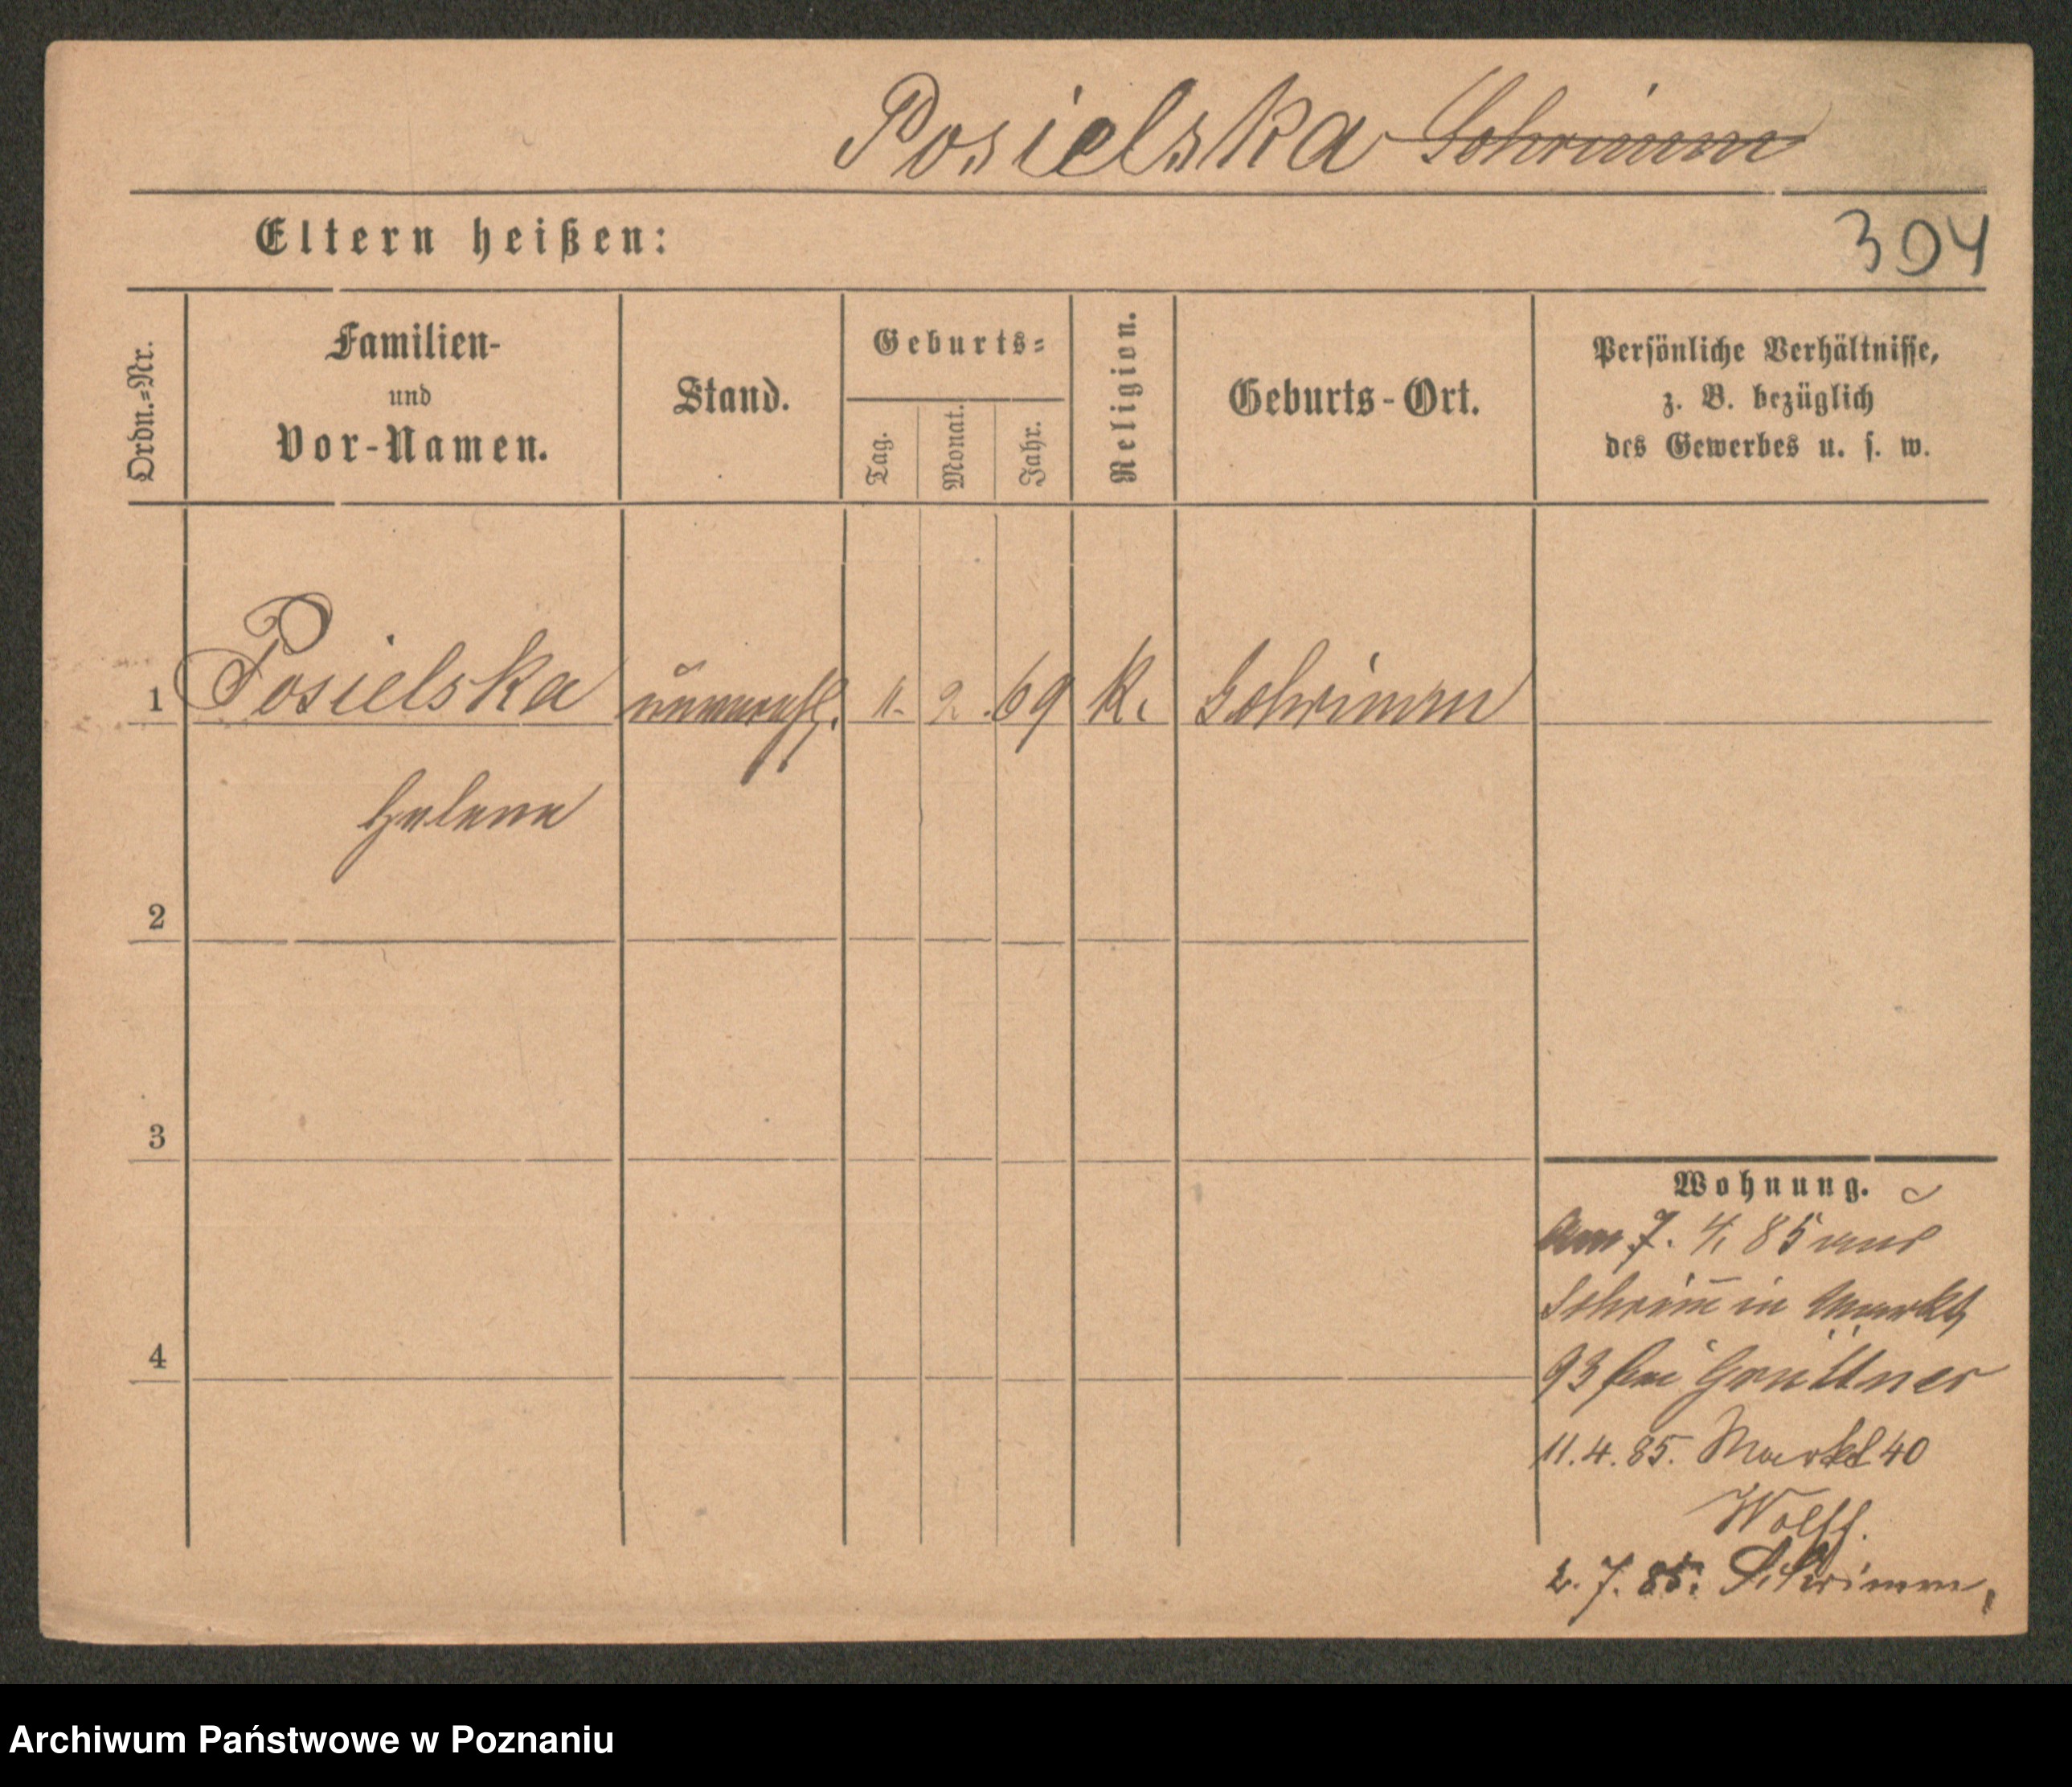 Posielska Schrimm
Eltern heißen:
304
Ordn.=Nr.
Familien-
und
Vor-Namen.
Stand.
Geburts=
Tag.
Monat.
Jahr.
Religion.
Geburts-Ort.
Persönliche Verhältnisse,
z. B. bezüglich
des Gewerbes u. s. w.
1 Posielska unvereh. 11. 2. 69 K. Schrimm
Helene
2
3
4
Wohnung.
am 7. 4. 85 aus
Schrim̄ in Markt
93 bei Grüttner
11. 4. 85. Markt 40
Wolff.
2. 7. 85. Schrimm,
Archiwum Państwowe w Poznaniu